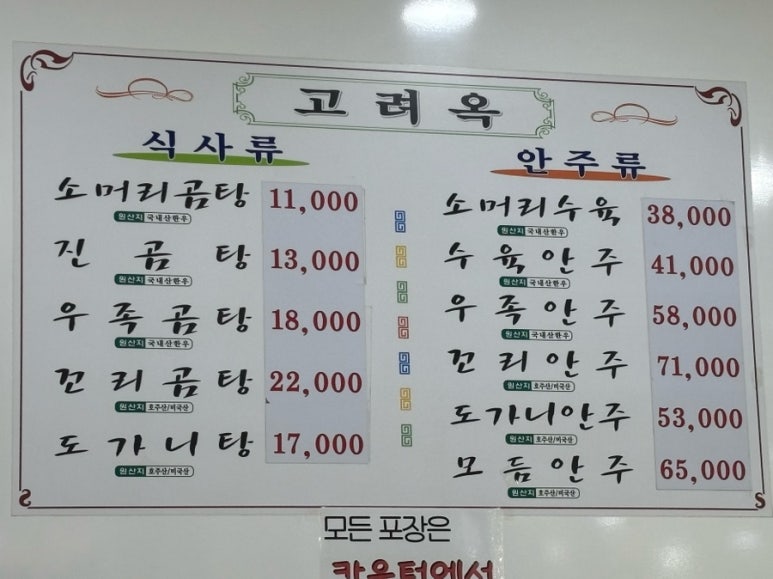 고려옥
식사류
소머리곰탕 11,000
원산지 국내산한우
진곰탕 13,000
원산지 국내산한우
우족곰탕 18,000
원산지 국내산한우
꼬리곰탕 22,000
원산지 호주산/미국산
도가니탕 17,000
원산지 호주산/미국산
안주류
소머리수육 38,000
원산지 국내산한우
수육안주 41,000
원산지 국내산한우
우족안주 58,000
원산지 국내산한우
꼬리안주 71,000
원산지 호주산/미국산
도가니안주 53,000
원산지 호주산/미국산
모듬안주 65,000
원산지 호주산/미국산
모든 포장은
카운터에서